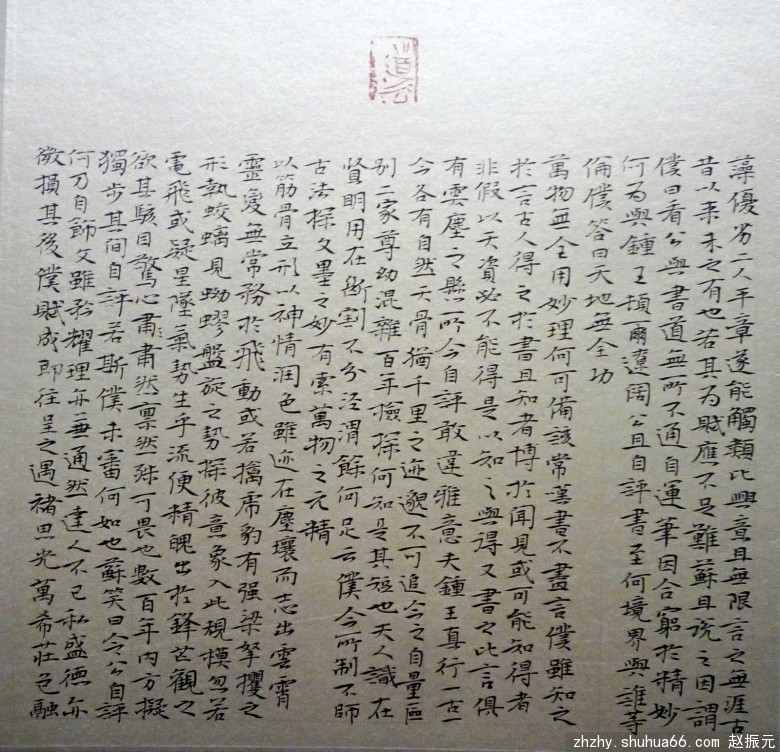 道
藻優劣二人平章遂能觸類比興意且無限言之無涯古
昔以来未之有也若其為賦應不足難蘇且說之因謂
僕曰看公與書道無所不通自運筆因合窮於精妙
何為與鍾王頓爾遼闊公且自評書至何境界與誰等
倫僕答曰天地無全功
萬物無全用妙理何可備該常嘆書不盡言僕雖知之
於言古人得之於書且知者博於聞見或可能知得者
非假以天資必不能得是以知之與得又書之比言俱
有雲塵之懸所令自評敢違雅意夫鍾王真行一古一
今各有自然天骨猶千里之迹邈不可追今之自量區
別二家尊幼混雜百年檢探何知是其短也夫人識在
賢明用在斷割不分涇渭餘何足云僕今所制不師
古法探文墨之妙有索萬物之元精
以筋骨立形以神情潤色雖迹在塵壤而志出雲霄
靈變無常務於飛動或若擒虎豹有强梁拏攫之
形執蛟螭見蚴蟉盤旋之勢探彼意象入此規模忽若
電飛或疑星墜氣勢生乎流便精魄出於鋒芒觀之
欲其駭目驚心肅肅然稟然殊可畏也數百年內方擬
獨步其間自評若斯僕未審何如也蘇笑曰令公自評
何乃自飾文雖矜耀理亦無通然達人不已私盛德亦
微損其後僕賦成即往呈之遇褚思光萬希莊包融
zhzhy.shuhua66.com 赵振元